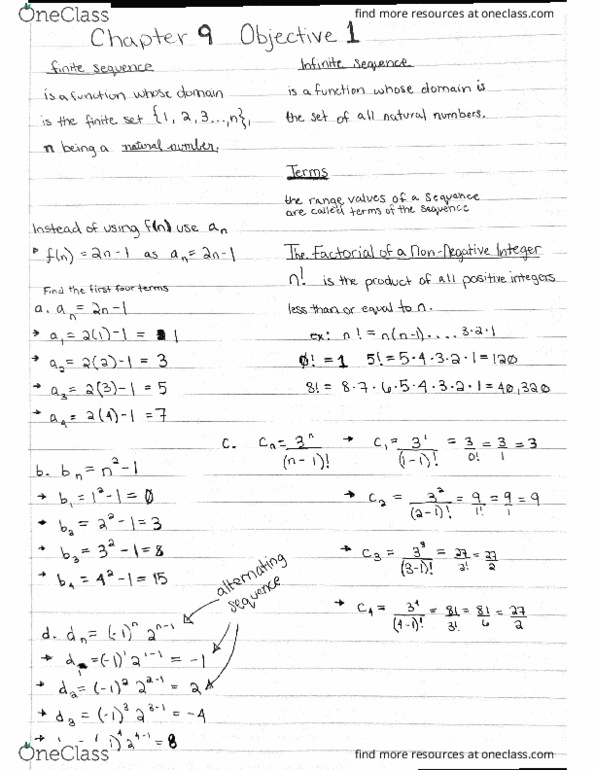 OneClass
find more resources at oneclass.com
Chapter 9 Objective 1
finite sequence
is a function whose domain
is the finite set {1, 2, 3...,n},
n being a natural number.
Infinite Sequence
is a function whose domain is
the set of all natural numbers.
Terms
the range values of a sequence
are called terms of the sequence
Instead of using f(n) use aₙ
f(n) = 2n-1 as aₙ = 2n-1
Find the first four terms
a. aₙ = 2n-1
→ a₁ = 2(1)-1 = 1
→ a₂ = 2(2)-1 = 3
→ a₃ = 2(3)-1 = 5
→ a₄ = 2(4)-1 = 7
The Factorial of a Non-Negative Integer
n! is the product of all positive integers
less than or equal to n.
ex: n! = n(n-1)....3·2·1
0! = 1 5! = 5·4·3·2·1 = 120
8! = 8·7·6·5·4·3·2·1 = 40,320
b. bₙ = n²-1
→ b₁ = 1²-1 = 0
→ b₂ = 2²-1 = 3
→ b₃ = 3²-1 = 8
→ b₄ = 4²-1 = 15
c. cₙ = 3ⁿ/(n-1)! → c₁ = 3¹/(1-1)! = 3/0! = 3/1 = 3
→ c₂ = 3²/(2-1)! = 9/1! = 9/1 = 9
→ c₃ = 3³/(3-1)! = 27/2! = 27/2
→ c₄ = 3⁴/(4-1)! = 81/3! = 81/6 = 27/2
alternating
sequence
d. dₙ = (-1)ⁿ 2ⁿ⁻¹
→ d₁ = (-1)¹ 2¹⁻¹ = -1
→ d₂ = (-1)² 2²⁻¹ = 2
→ d₃ = (-1)³ 2³⁻¹ = -4
)⁴ 2⁴⁻¹ = 8
OneClass
find more resources at oneclass.com